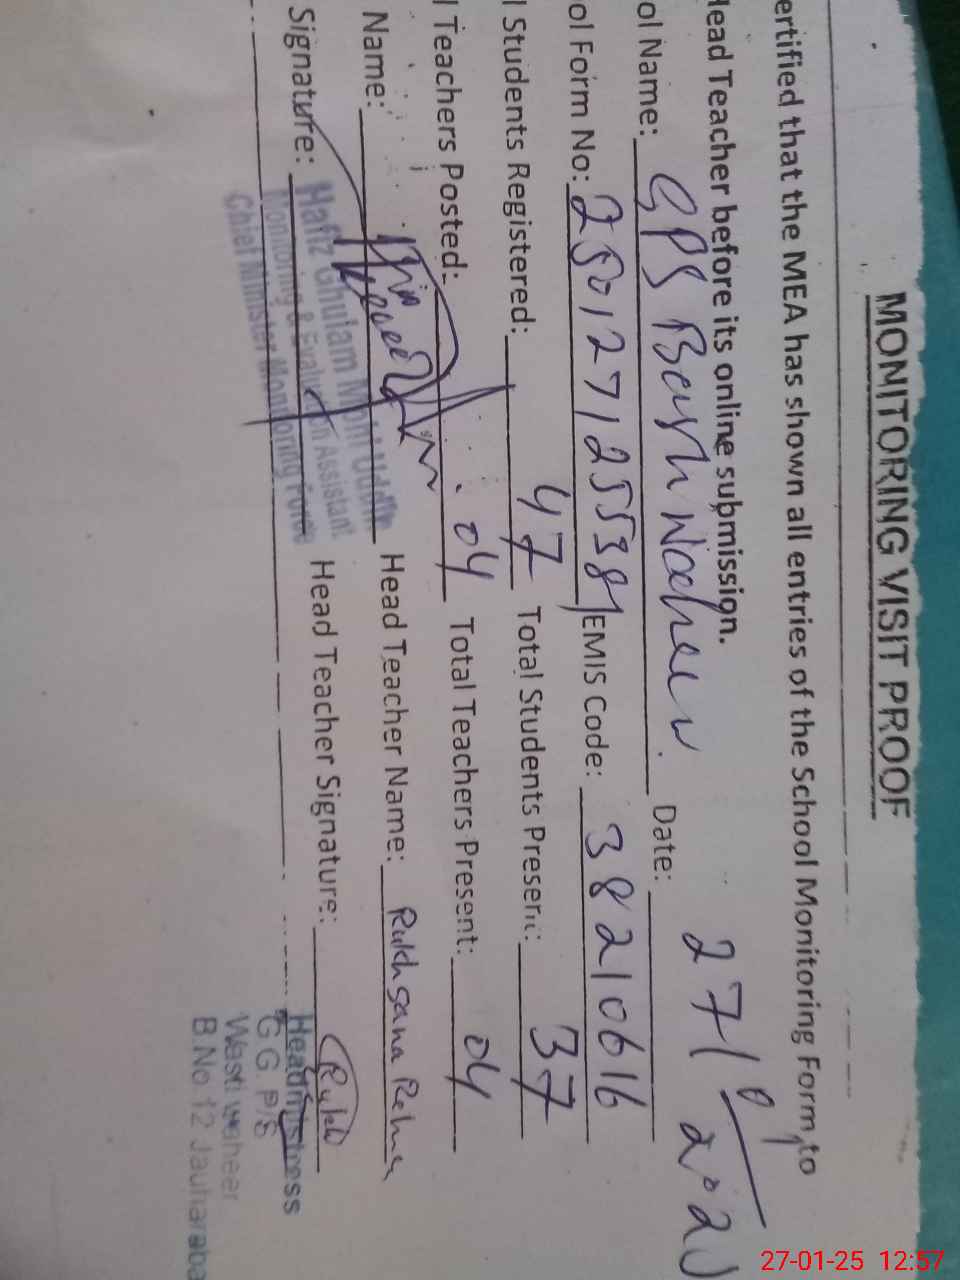 MONITORING VISIT PROOF
ertified that the MEA has shown all entries of the School Monitoring Form to
Head Teacher before its online submission.
ol Name: GPS Date: 27/01/2025
ol Form No: EMIS Code: 38210616
l Students Registered: 47 Total Students Present: 37
l Teachers Posted: 04 Total Teachers Present: 04
Name: Head Teacher Name: Rukhsana Rehna
Signature: Head Teacher Signature: Rukh
Hafiz Ghulam Mohi Uddin
Monitoring & Evaluation Assistant
Chief Minister Monitoring Force
Headmistress
G G. P/S
Wasti waheer
B.No 12 Jauharaba
27-01-25 12:57